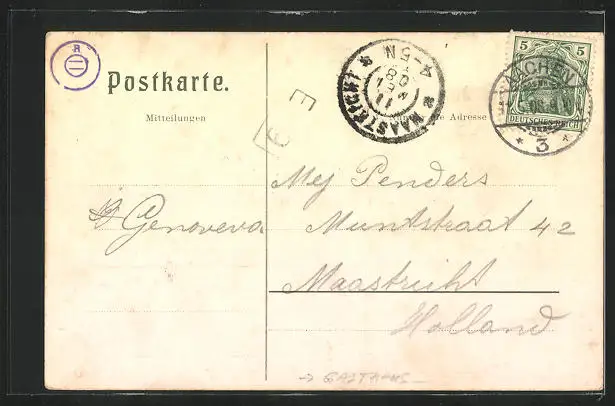 R
Postkarte.
Mitteilungen
Adresse
MAASTRICHT
4-5N
11
08
AACHEN
3
5 5
DEUTSCHES REICH
Mej Penders
Muntstraat 42
Maastricht
Holland
Genoveva
E